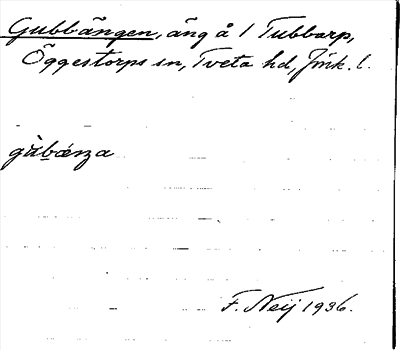 Gubbängen, äng å 1 Tubbarp,
Öggestorps sn, Tveta hd, Jönk. l.
gùbǽnza
F. Neij 1936.